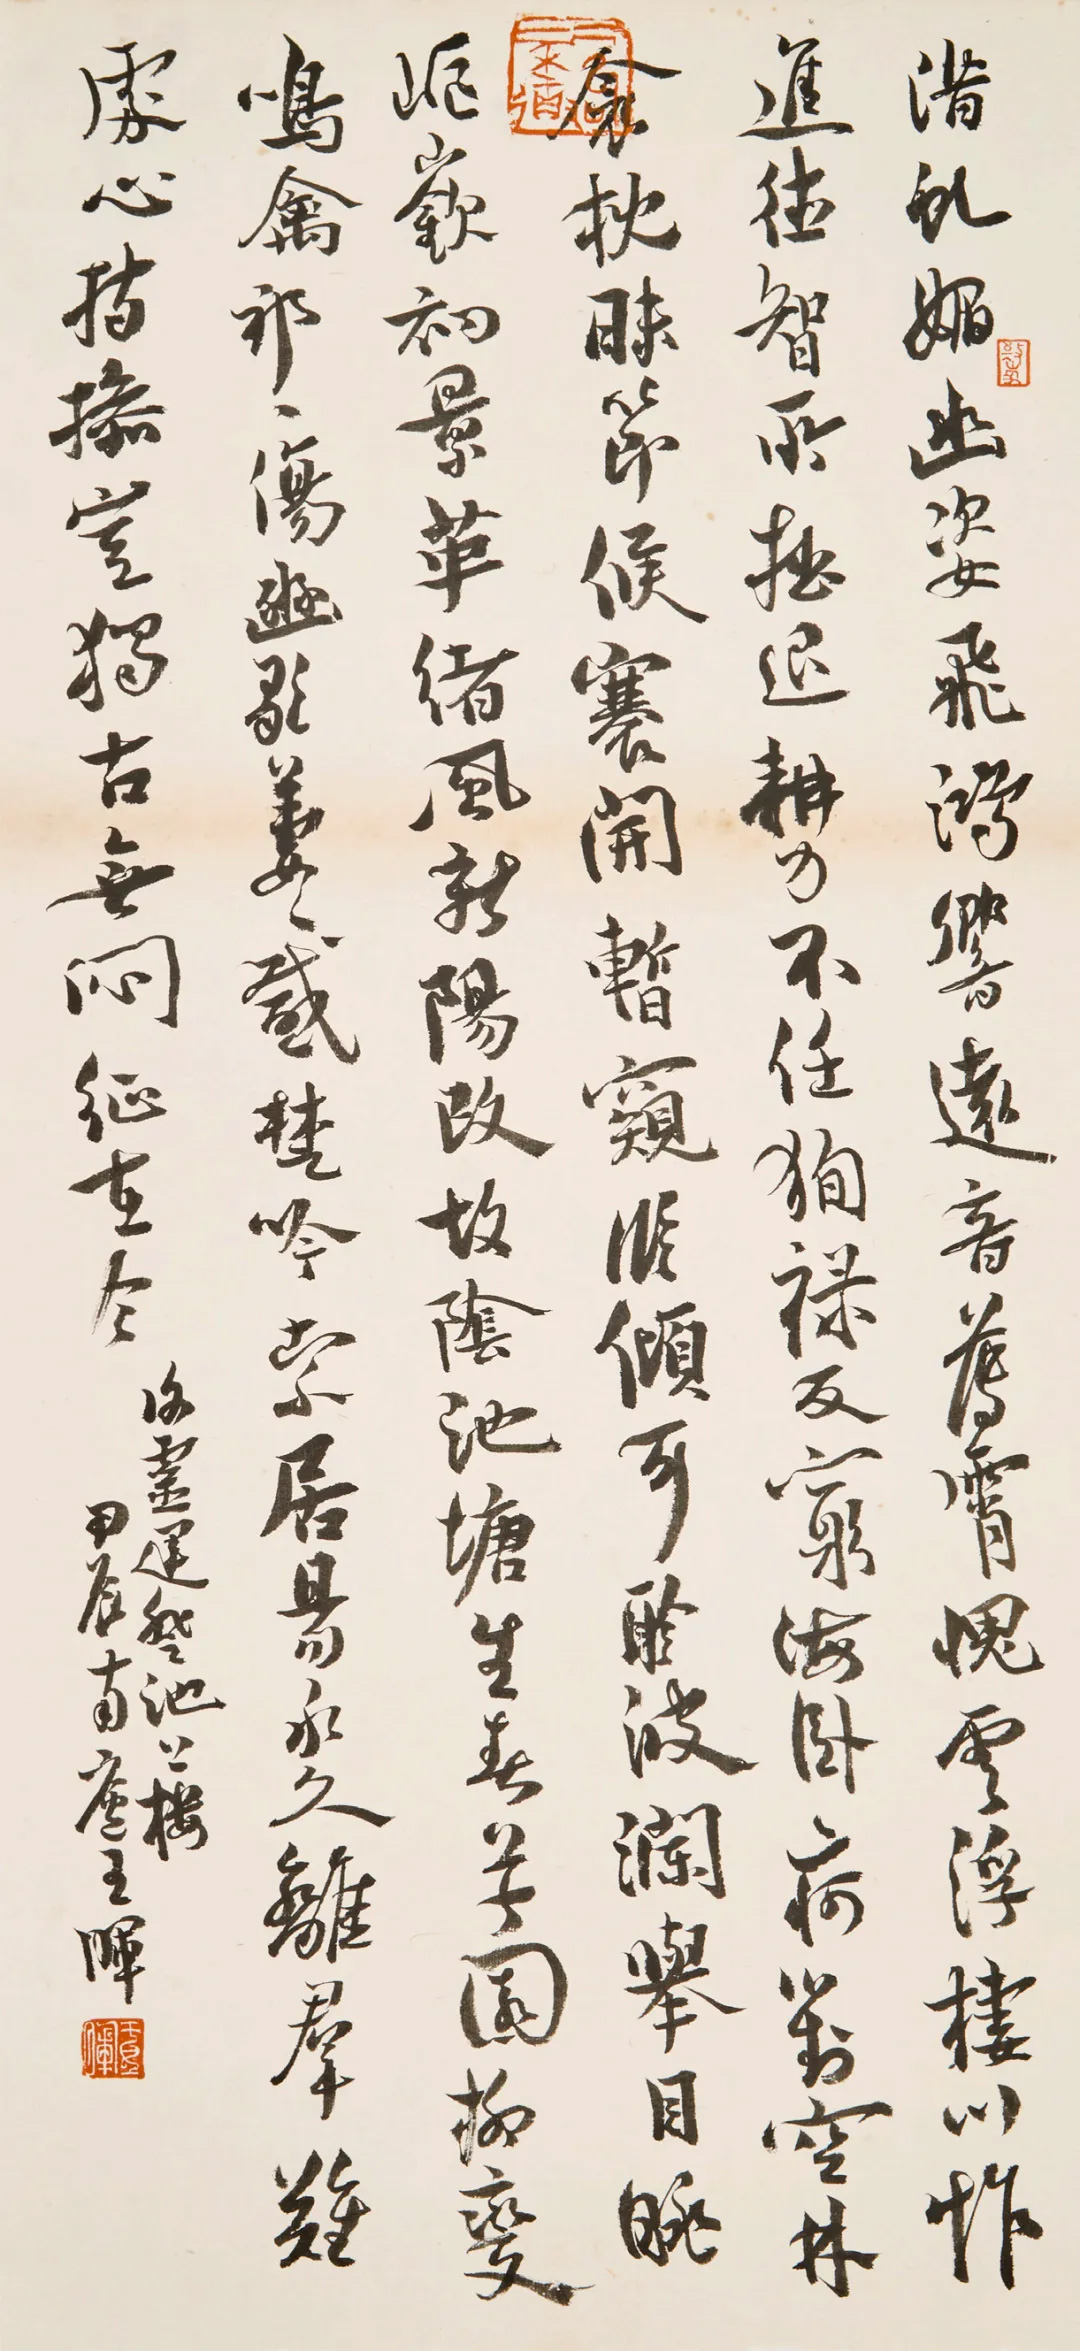 潛虬媚幽姿飛鴻響遠音薄霄愧雲浮棲川怍
進德智所拙退耕力不任狥祿反窮海卧痾對空林
衾枕昧節候褰開暫窺臨傾耳聆波瀾舉目眺
嶇嶔初景革緒風新陽改故陰池塘生春草園柳變
鳴禽祁祁傷豳歌萋萋感楚吟索居易永久離群難
處心持操豈獨古無悶徵在今
謝靈運登池上樓
甲辰南廬王暉